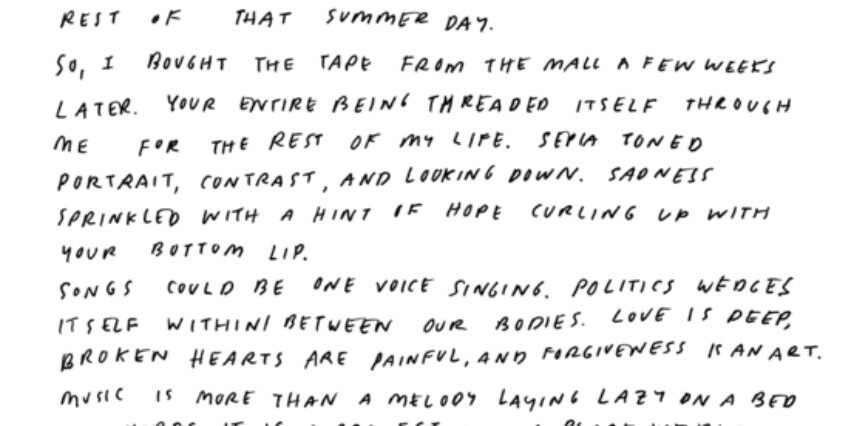 REST OF THAT SUMMER DAY.
SO, I BOUGHT THE TAPE FROM THE MALL A FEW WEEKS
LATER. YOUR ENTIRE BEING THREADED ITSELF THROUGH
ME FOR THE REST OF MY LIFE. SEPIA TONED
PORTRAIT, CONTRAST, AND LOOKING DOWN. SADNESS
SPRINKLED WITH A HINT OF HOPE CURLING UP WITH
YOUR BOTTOM LIP.
SONGS COULD BE ONE VOICE SINGING. POLITICS WEDGES
ITSELF WITHIN/BETWEEN OUR BODIES. LOVE IS DEEP,
BROKEN HEARTS ARE PAINFUL, AND FORGIVENESS IS AN ART.
MUSIC IS MORE THAN A MELODY LAYING LAZY ON A BED